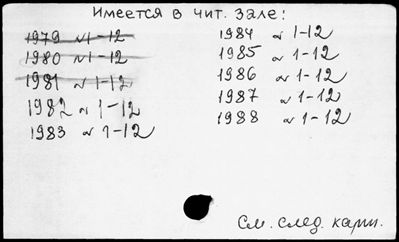 Имеется в чит. зале:
1979 N 1-12
1980 N 1-12
1981 N 1-12
1982 N 1-12
1983 N 1-12
1984 N 1-12
1985 N 1-12
1986 N 1-12
1987 N 1-12
1988 N 1-12
См. след. карт.